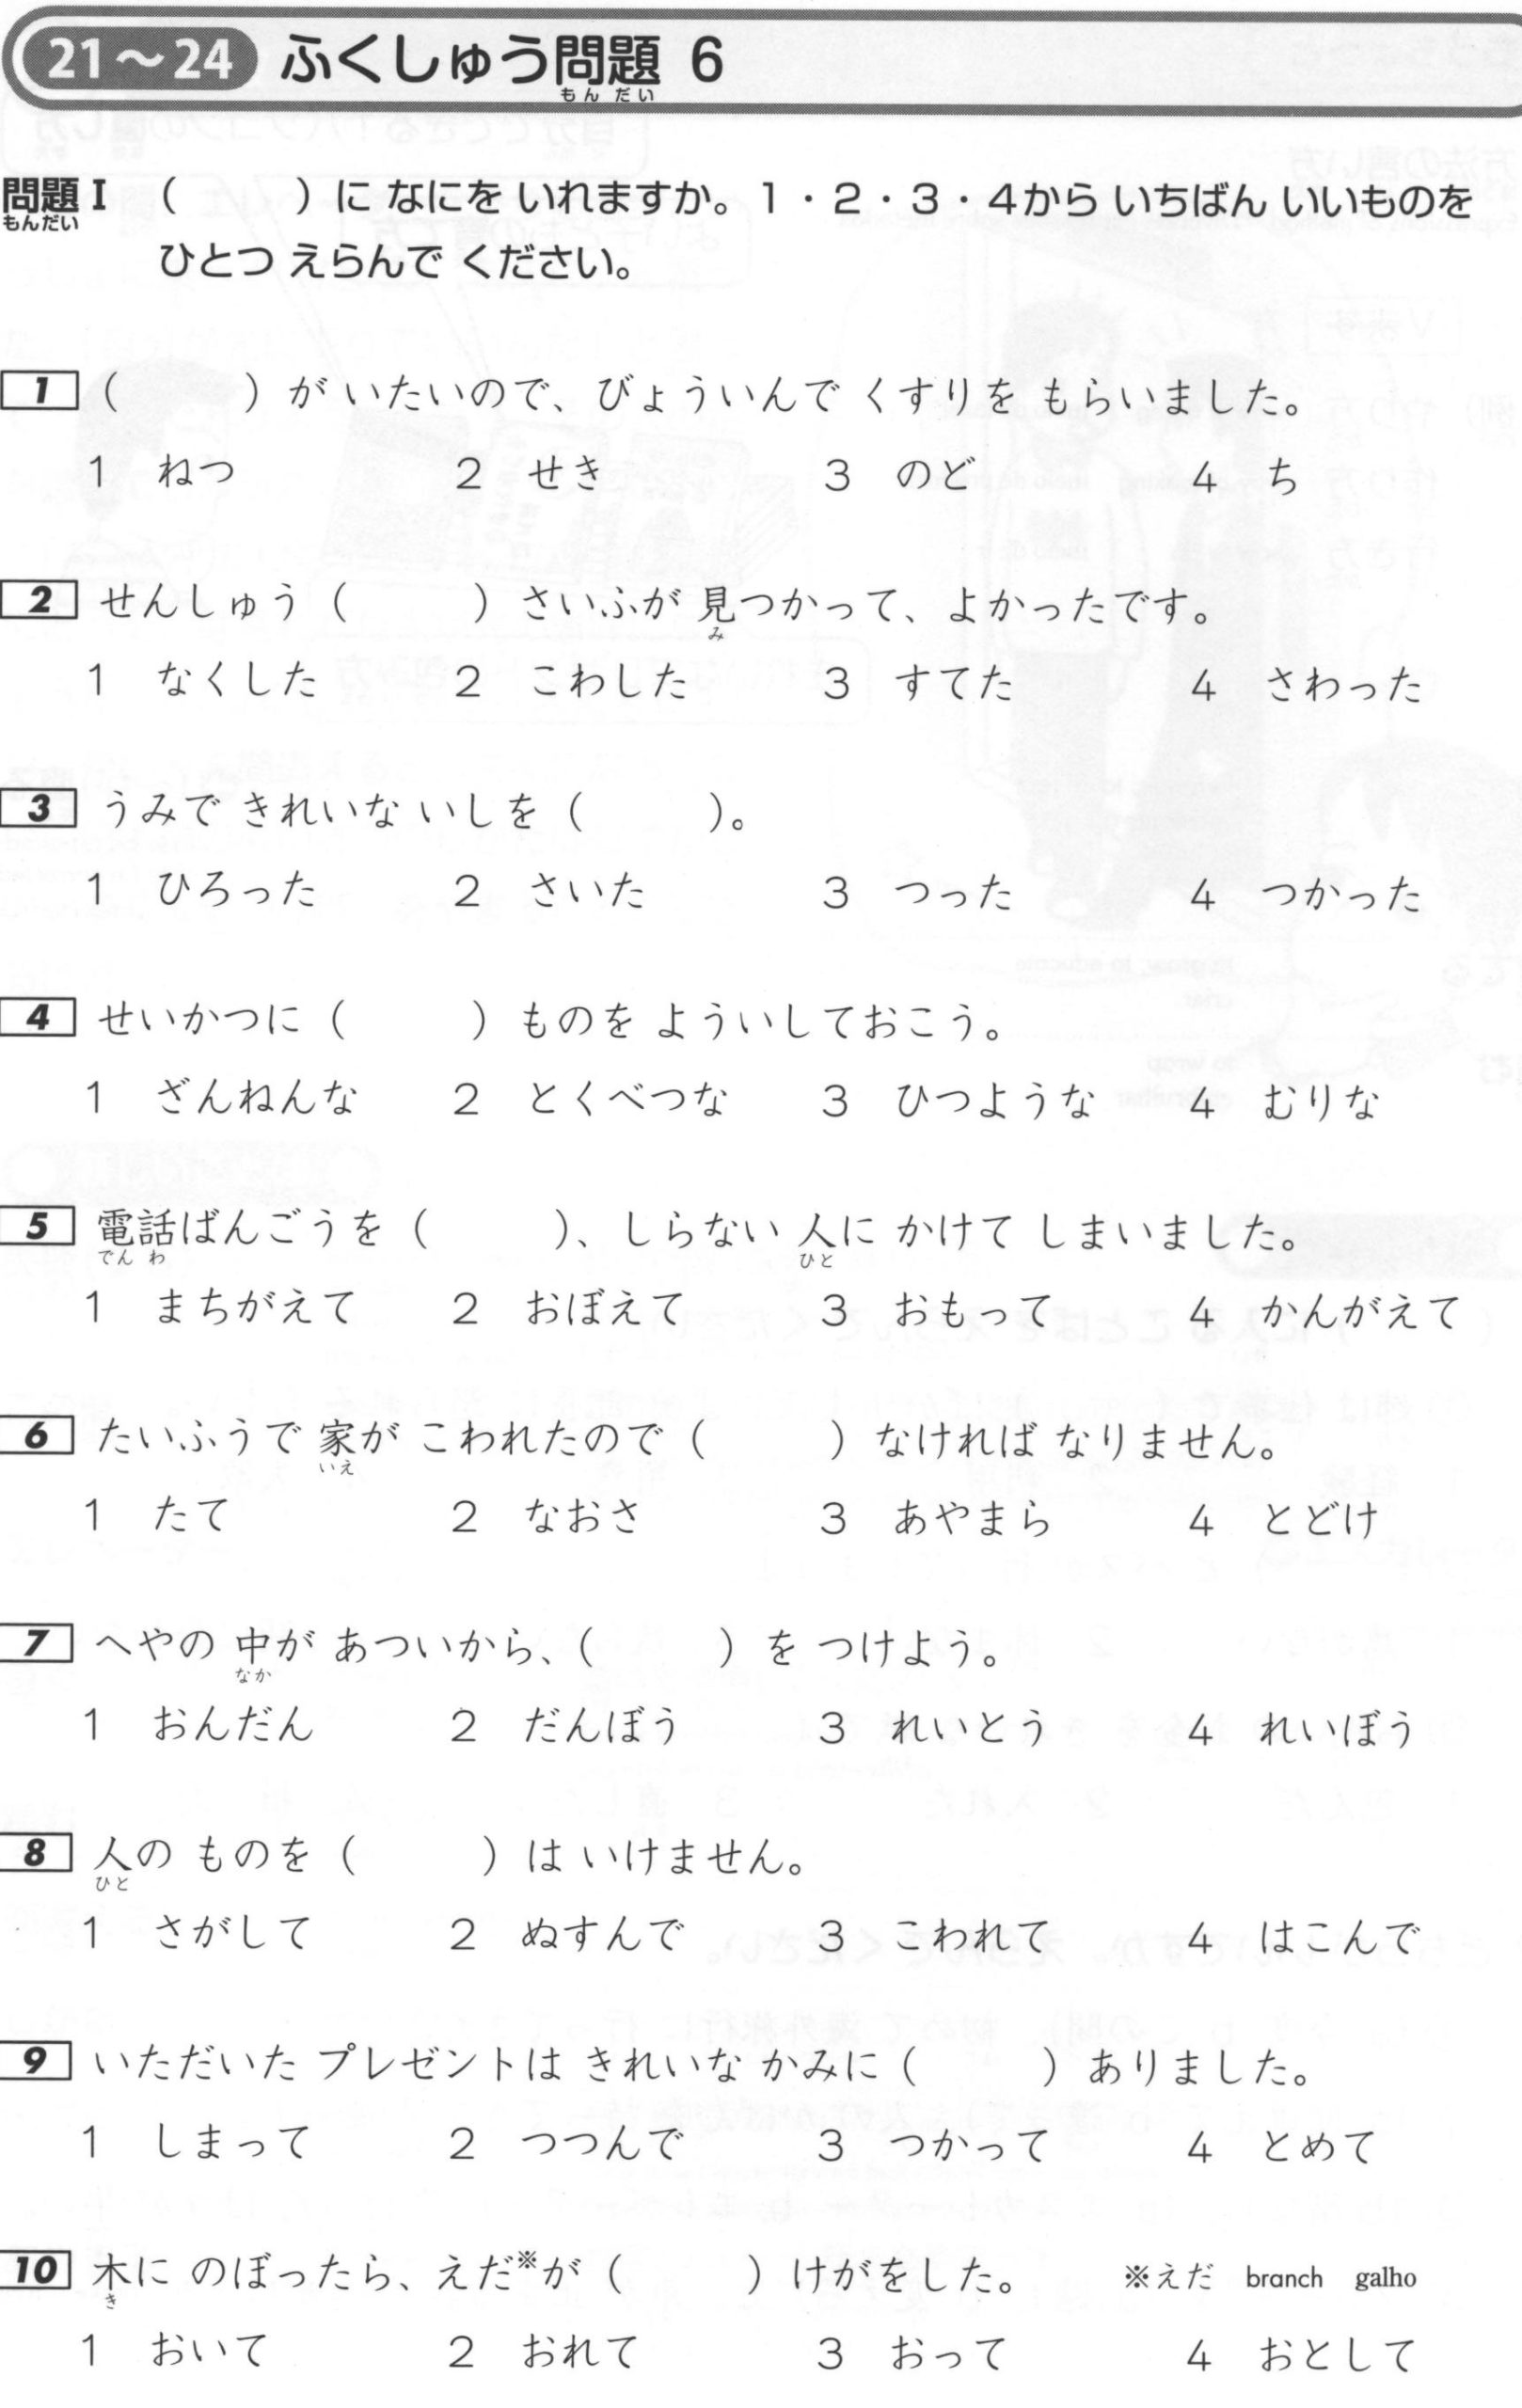 21～24 ふくしゅう問題 6
もんだい
問題Ⅰ （　　）に なにを いれますか。1・2・3・4から いちばん いいものを
もんだい
ひとつ えらんで ください。
1 （　　）が いたいので、びょういんで くすりを もらいました。
1 ねつ 2 せき 3 のど 4 ち
2 せんしゅう（　　）さいふが 見つかって、よかったです。
み
1 なくした 2 こわした 3 すてた 4 さわった
3 うみで きれいな いしを（　　）。
1 ひろった 2 さいた 3 つった 4 つかった
4 せいかつに（　　）ものを よういしておこう。
1 ざんねんな 2 とくべつな 3 ひつような 4 むりな
5 電話ばんごうを（　　）、しらない 人に かけて しまいました。
でん わ ひと
1 まちがえて 2 おぼえて 3 おもって 4 かんがえて
6 たいふうで 家が こわれたので（　　）なければ なりません。
いえ
1 たて 2 なおさ 3 あやまら 4 とどけ
7 へやの 中が あついから、（　　）を つけよう。
なか
1 おんだん 2 だんぼう 3 れいとう 4 れいぼう
8 人の ものを（　　）は いけません。
ひと
1 さがして 2 ぬすんで 3 こわれて 4 はこんで
9 いただいた プレゼントは きれいな かみに（　　）ありました。
1 しまって 2 つつんで 3 つかって 4 とめて
10 木に のぼったら、えだ※が（　　）けがをした。 ※えだ branch galho
き
1 おいて 2 おれて 3 おって 4 おとして